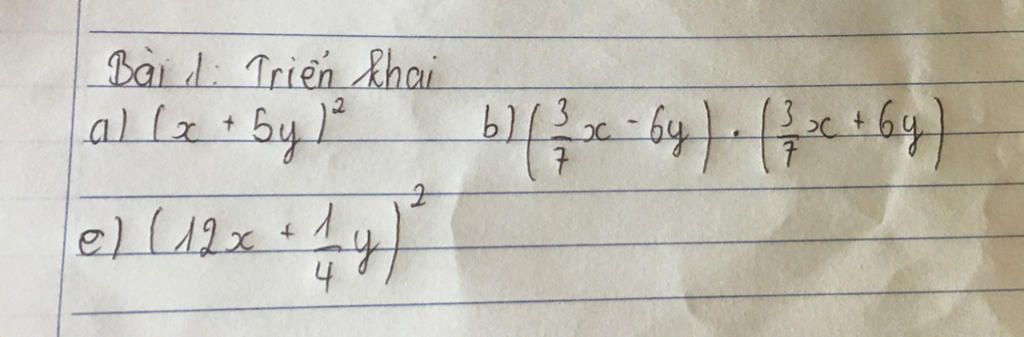 Bài 1: Triển khai
a) (x + 5y)² b) (3/7 x - 6y) . (3/7 x + 6y)
e) (12x + 1/4 y)²